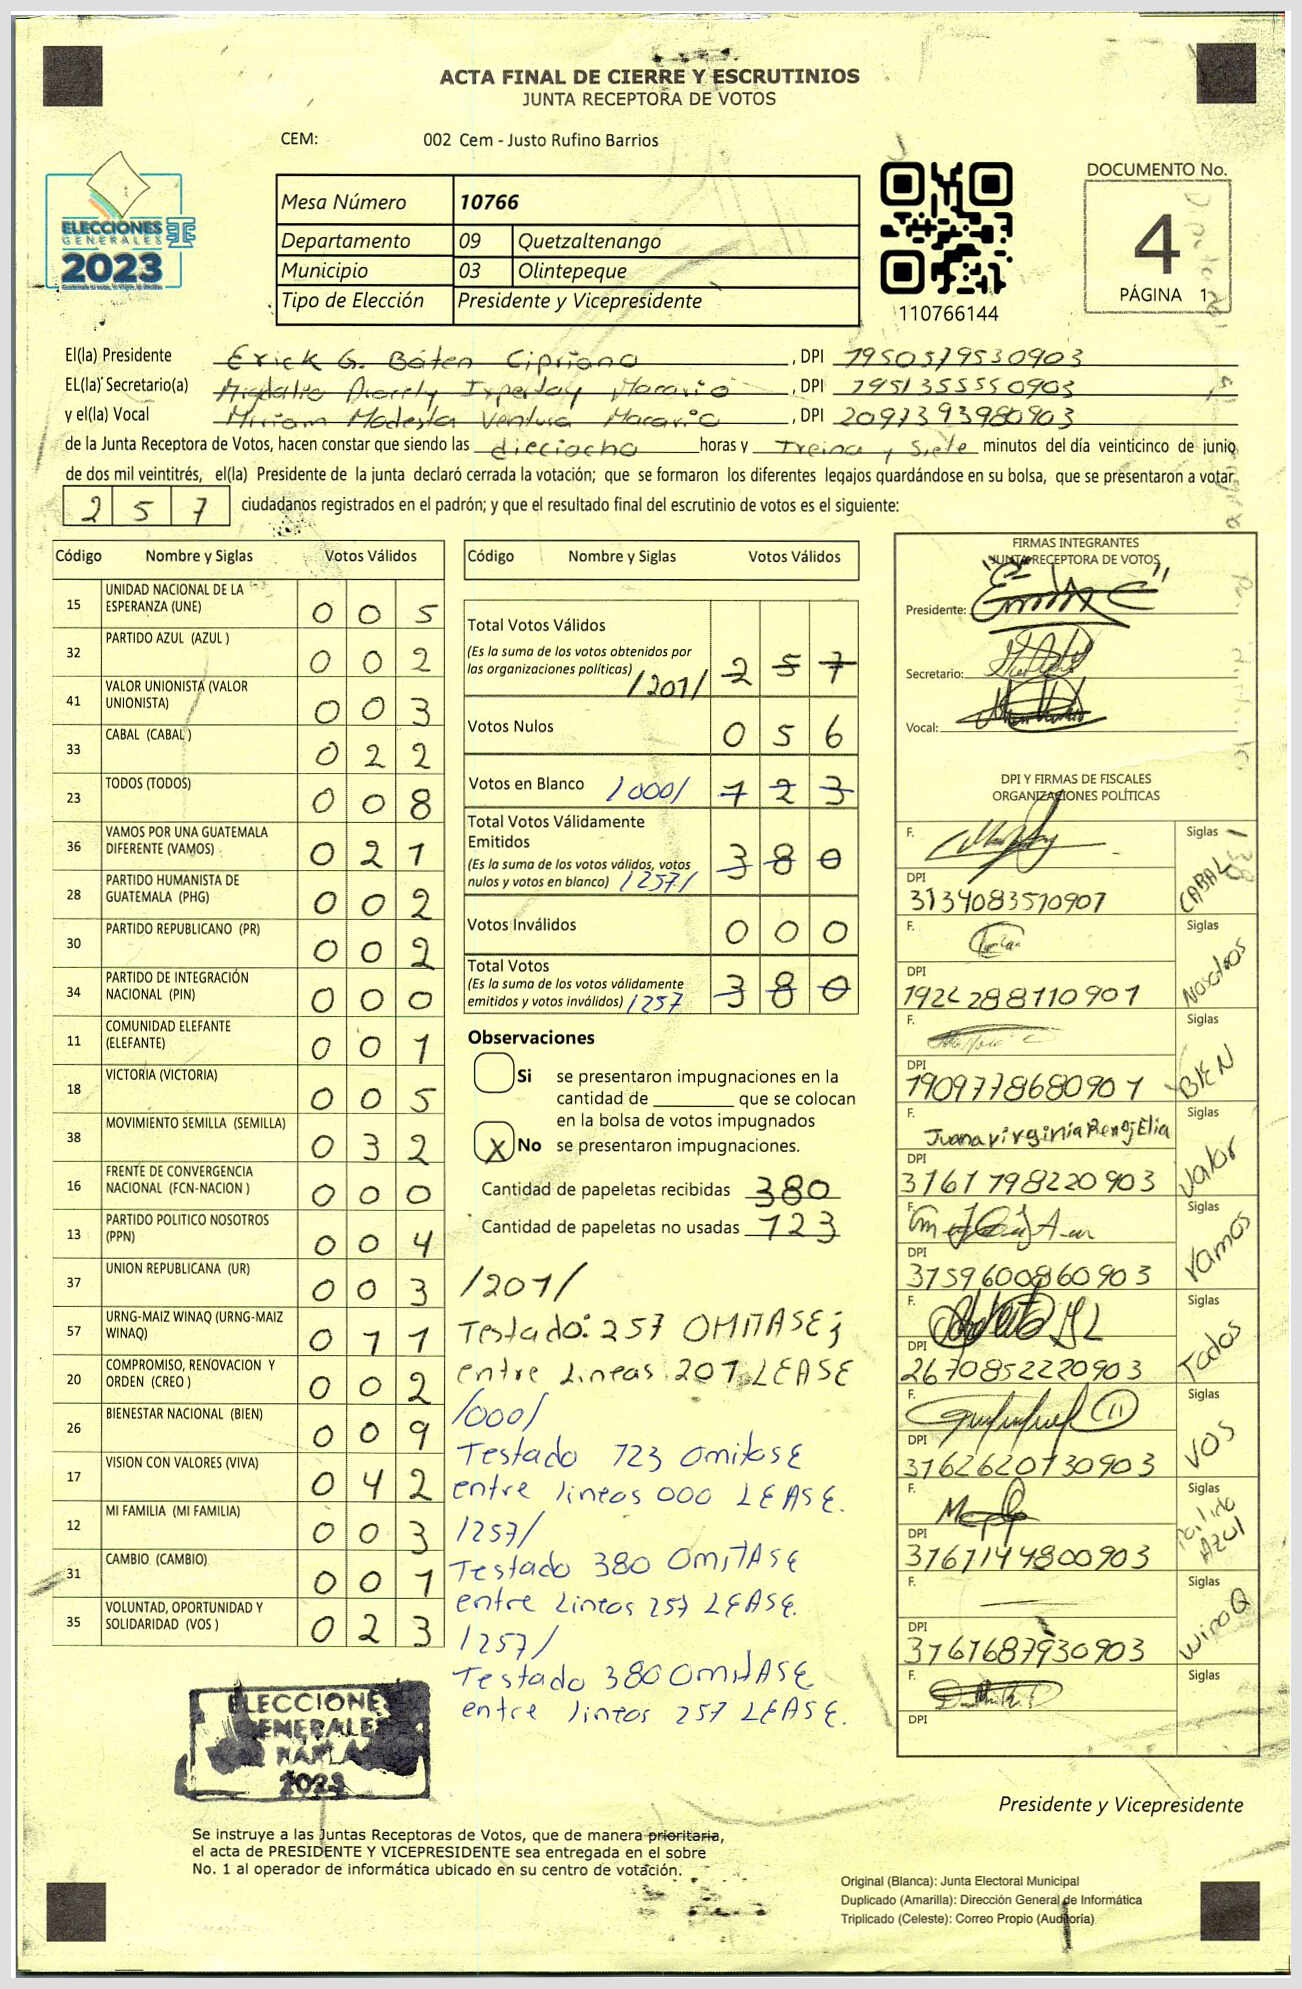 ACTA FINAL DE CIERRE Y ESCRUTINIOS
JUNTA RECEPTORA DE VOTOS
CEM: 002 Cem - Justo Rufino Barrios
ELECCIONES
GENERALES
2023
Mesa Número 10766
Departamento 09 Quetzaltenango
Municipio 03 Olintepeque
Tipo de Elección Presidente y Vicepresidente
110766144
DOCUMENTO No.
4
PÁGINA 1
El(la) Presidente Erick G. Báten Cipriano, DPI 1950579530903
EL(la) Secretario(a) Macario, DPI 1951355550903
y el(la) Vocal Miriam Modesta Ventura Macario, DPI 2097393980903
de la Junta Receptora de Votos, hacen constar que siendo las dieciocho horas y Treina y Siete minutos del día veinticinco de junio
de dos mil veintitrés, el(la) Presidente de la junta declaró cerrada la votación; que se formaron los diferentes legajos guardándose en su bolsa, que se presentaron a votar
257 ciudadanos registrados en el padrón; y que el resultado final del escrutinio de votos es el siguiente:
Código Nombre y Siglas Votos Válidos
15 UNIDAD NACIONAL DE LA ESPERANZA (UNE) 0 0 5
32 PARTIDO AZUL (AZUL ) 0 0 2
41 VALOR UNIONISTA (VALOR UNIONISTA) 0 0 3
33 CABAL (CABAL ) 0 2 2
23 TODOS (TODOS) 0 0 8
36 VAMOS POR UNA GUATEMALA DIFERENTE (VAMOS) 0 2 1
28 PARTIDO HUMANISTA DE GUATEMALA (PHG) 0 0 2
30 PARTIDO REPUBLICANO (PR) 0 0 2
34 PARTIDO DE INTEGRACIÓN NACIONAL (PIN) 0 0 0
11 COMUNIDAD ELEFANTE (ELEFANTE) 0 0 1
18 VICTORIA (VICTORIA) 0 0 5
38 MOVIMIENTO SEMILLA (SEMILLA) 0 3 2
16 FRENTE DE CONVERGENCIA NACIONAL (FCN-NACION ) 0 0 0
13 PARTIDO POLITICO NOSOTROS (PPN) 0 0 4
37 UNION REPUBLICANA (UR) 0 0 3
57 URNG-MAIZ WINAQ (URNG-MAIZ WINAQ) 0 1 1
20 COMPROMISO, RENOVACION Y ORDEN (CREO ) 0 0 2
26 BIENESTAR NACIONAL (BIEN) 0 0 9
17 VISION CON VALORES (VIVA) 0 4 2
12 MI FAMILIA (MI FAMILIA) 0 0 3
31 CAMBIO (CAMBIO) 0 0 1
35 VOLUNTAD, OPORTUNIDAD Y SOLIDARIDAD (VOS ) 0 2 3
Código Nombre y Siglas Votos Válidos
Total Votos Válidos
(Es la suma de los votos obtenidos por
las organizaciones políticas) /201/ 2 5 7
Votos Nulos 0 5 6
Votos en Blanco /000/ 1 2 3
Total Votos Válidamente
Emitidos
(Es la suma de los votos válidos, votos
nulos y votos en blanco) /257/ 3 8 0
Votos Inválidos 0 0 0
Total Votos
(Es la suma de los votos válidamente
emitidos y votos inválidos) /257 3 8 0
Observaciones
Si se presentaron impugnaciones en la
cantidad de ________ que se colocan
en la bolsa de votos impugnados
X No se presentaron impugnaciones.
Cantidad de papeletas recibidas 380
Cantidad de papeletas no usadas 123
/201/
Testado: 257 OMITASE;
entre Lineas 201 LEASE
/000/
Testado 123 OmitasE
entre lineas 000 LEASE.
/257/
Testado 380 OMITASE
entre Lineas 257 LEASE.
/257/
Testado 380 OmitASE
entre lineas 257 LEASE.
FIRMAS INTEGRANTES
JUNTA RECEPTORA DE VOTOS
Presidente:
Secretario:
Vocal:
DPI Y FIRMAS DE FISCALES
ORGANIZACIONES POLÍTICAS
F. Siglas CABAL
DPI 3134083510901
F. Siglas Nosotros
DPI 1924288110901
F. Siglas BIEN
DPI 1909778680901
F. Juana virginia Renoj Elia Siglas Valor
DPI 3161798220903
F. Siglas Vamos
DPI 3159600860903
F. Siglas Todos
DPI 2670852220903
F. Siglas VOS
DPI 3162620130903
F. Siglas Partido AZUl
DPI 3161144800903
F. Siglas WinaQ
DPI 3161687930903
F. Siglas
DPI
ELECCIONES
GENERALES
2023
Presidente y Vicepresidente
Se instruye a las Juntas Receptoras de Votos, que de manera prioritaria,
el acta de PRESIDENTE Y VICEPRESIDENTE sea entregada en el sobre
No. 1 al operador de informática ubicado en su centro de votación.
Original (Blanca): Junta Electoral Municipal
Duplicado (Amarilla): Dirección General de Informática
Triplicado (Celeste): Correo Propio (Auditoría)